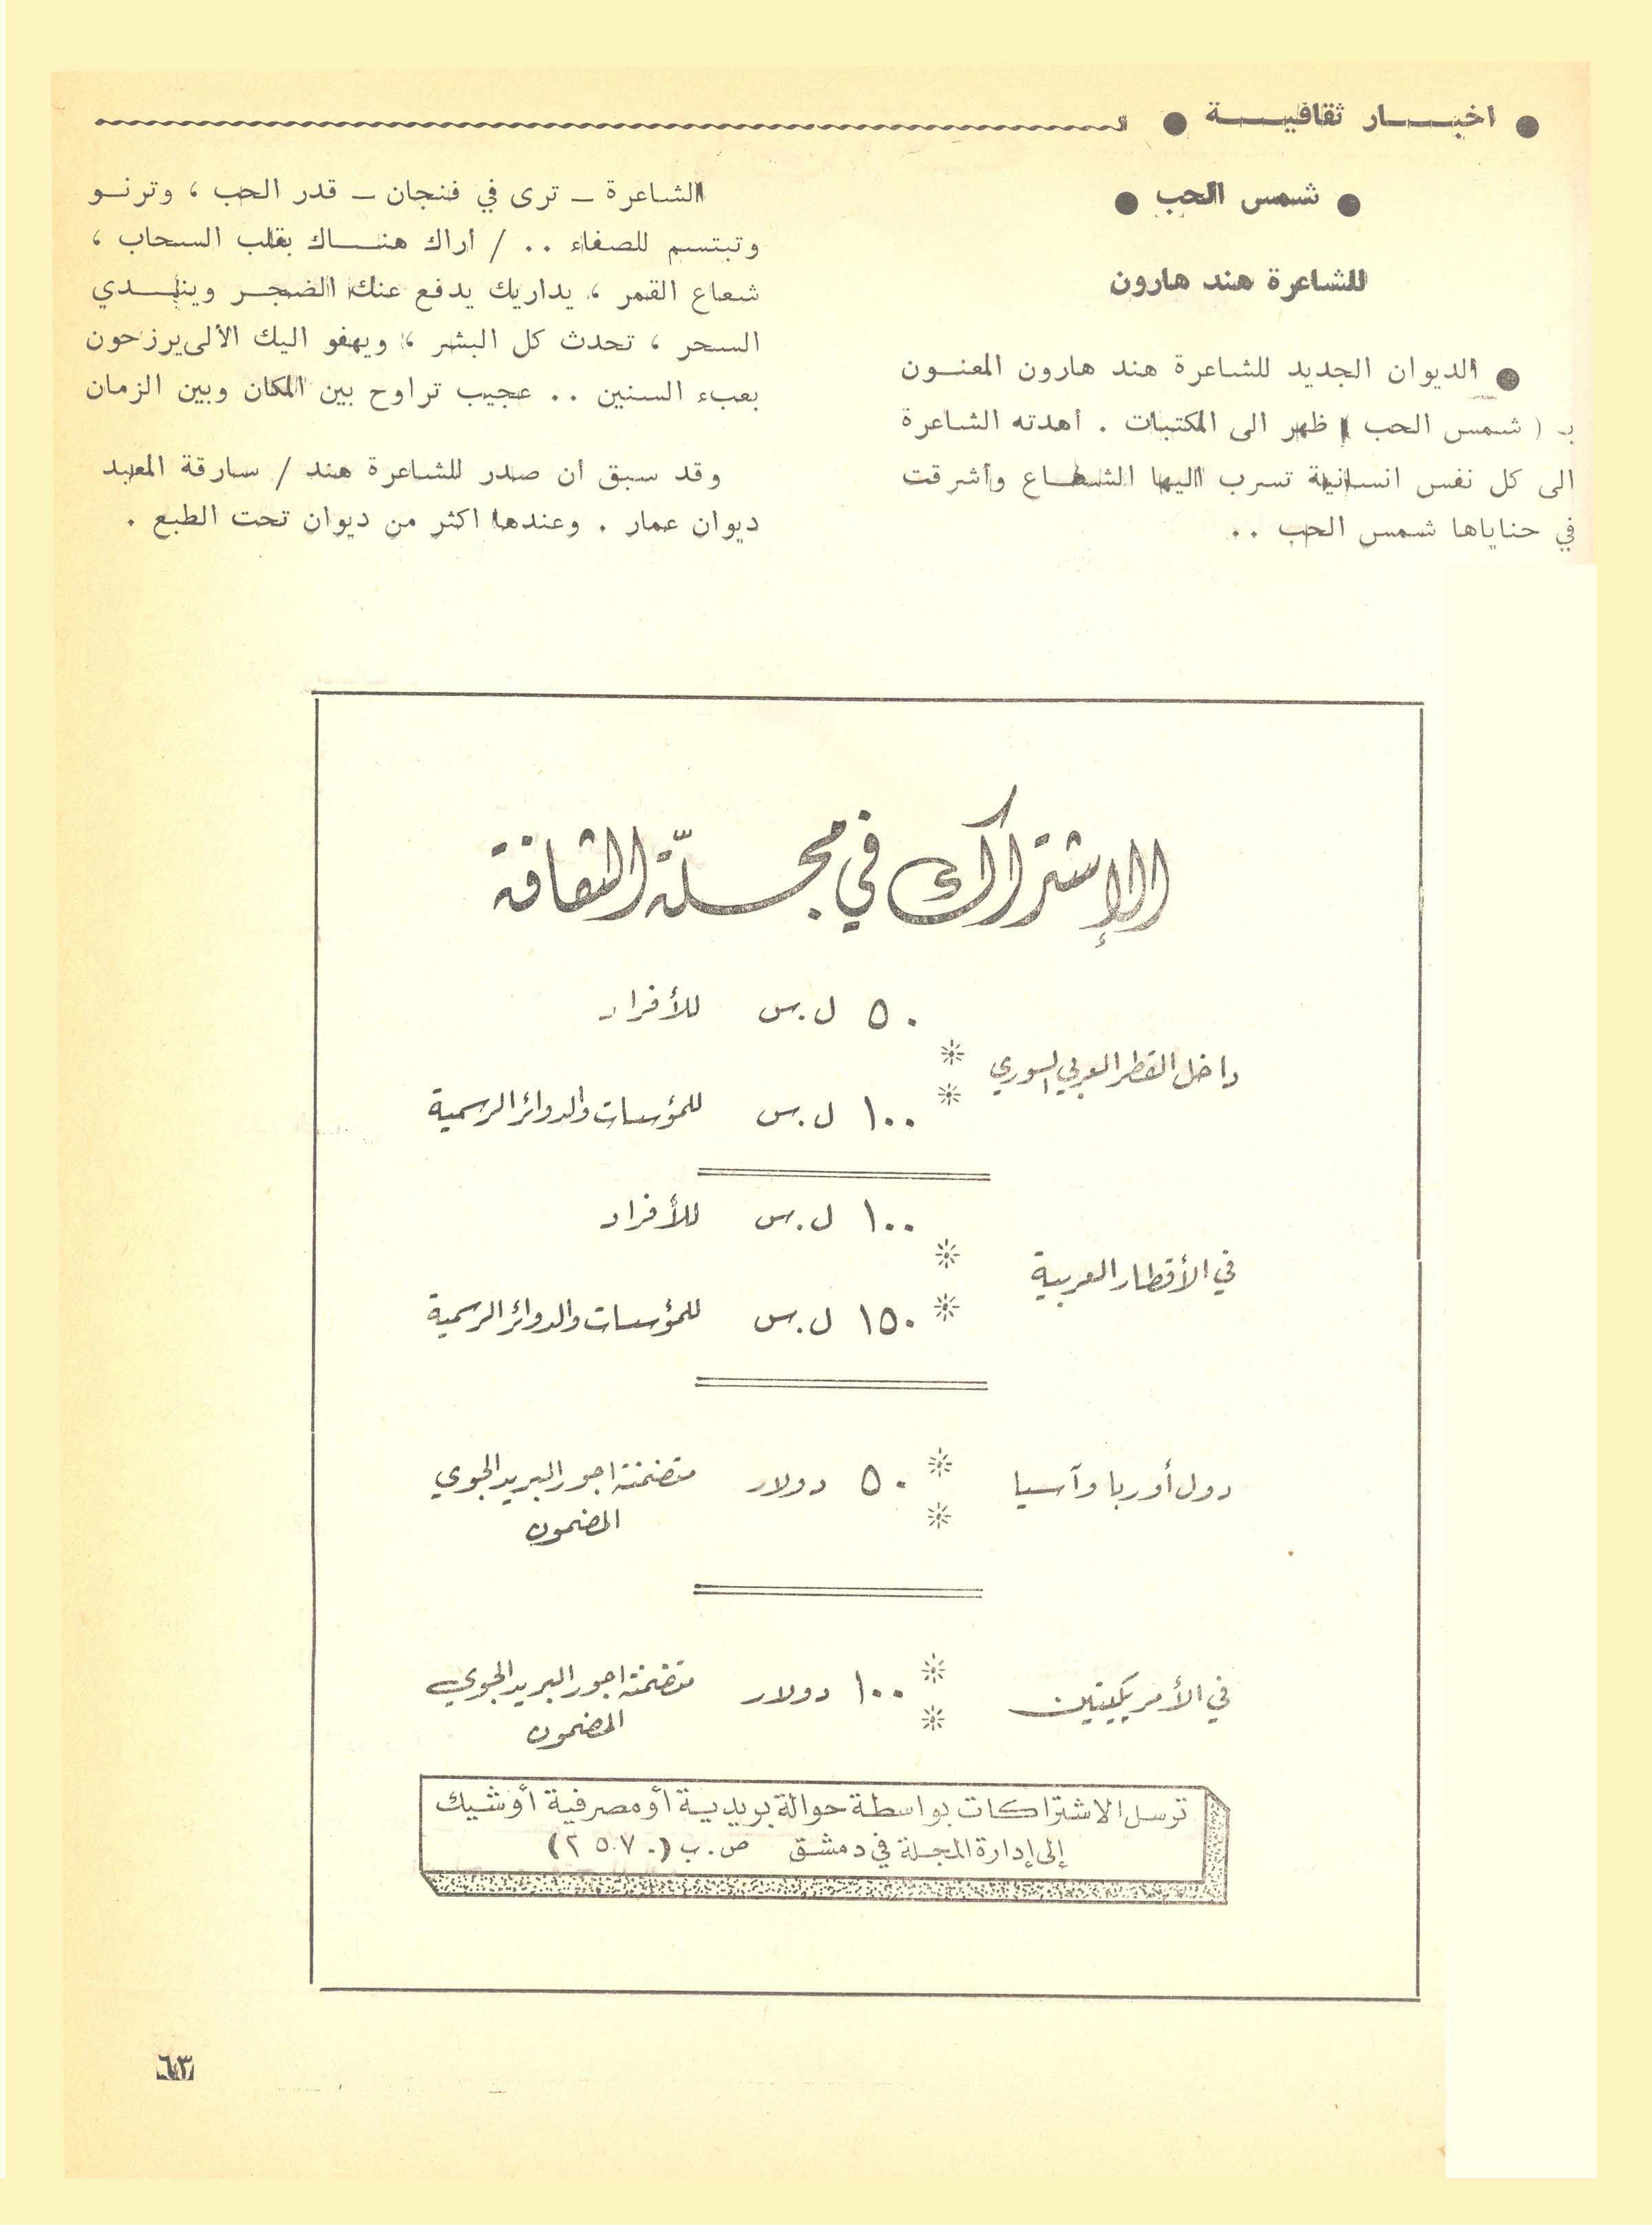 ● اخبـــار ثقافيـــة ●
● شمس الحب ●
للشاعرة هند هارون
● الديوان الجديد للشاعرة هند هارون المعنــون
بـ ( شمس الحب ) ظهر الى المكتبات . أهدته الشاعرة
الى كل نفس انسانية تسرب اليها الشعـاع وأشرقت
في حناياها شمس الحب ..
الشاعرة ــ ترى في فنجان ــ قدر الحب ، وترنـو
وتبتسم للصفاء .. / أراك هنــاك بقلب السحاب ،
شعاع القمر ، يداريك يدفع عنك الضجـر وينــدي
السحر ، تحدث كل البشر ، ويهفو اليك الألى يرزحون
بعبء السنين .. عجيب تراوح بين المكان وبين الزمان
وقد سبق أن صدر للشاعرة هند / سارقة المعبد
ديوان عمار . وعندها اكثر من ديوان تحت الطبع .
الإشتراك في مجلّة الثقافة
داخل القطر العربي السوري
٥٠ ل.س للأفراد
١٠٠ ل.س للمؤسسات والدوائر الرسمية
في الأقطار العربية
١٠٠ ل.س للأفراد
١٥٠ ل.س للمؤسسات والدوائر الرسمية
دول أوربا وآسيا ٥٠ دولار متضمنة اجور البريد الجوي
المضمون
في الأمريكيتين ١٠٠ دولار متضمنة اجور البريد الجوي
المضمون
ترسل الاشتراكات بواسطة حوالة بريدية أو مصرفية أو شيك
إلى إدارة المجلة في دمشق ص.ب (٢٥٧٠)
٦٣